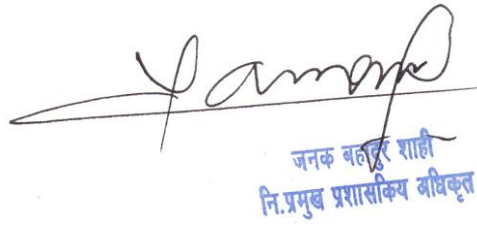 जनक बहादुर शाही
नि.प्रमुख प्रशासकिय अधिकृत